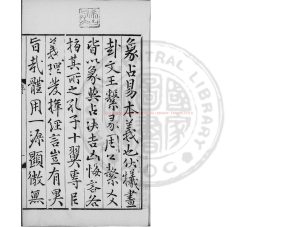 象占易本義也伏犧畫
卦文王繫彖周公繫爻
皆以象與占決吉凶悔吝
指其所之孔子十翼專用
義理發揮經言豈有異
旨哉體用一源顯微無